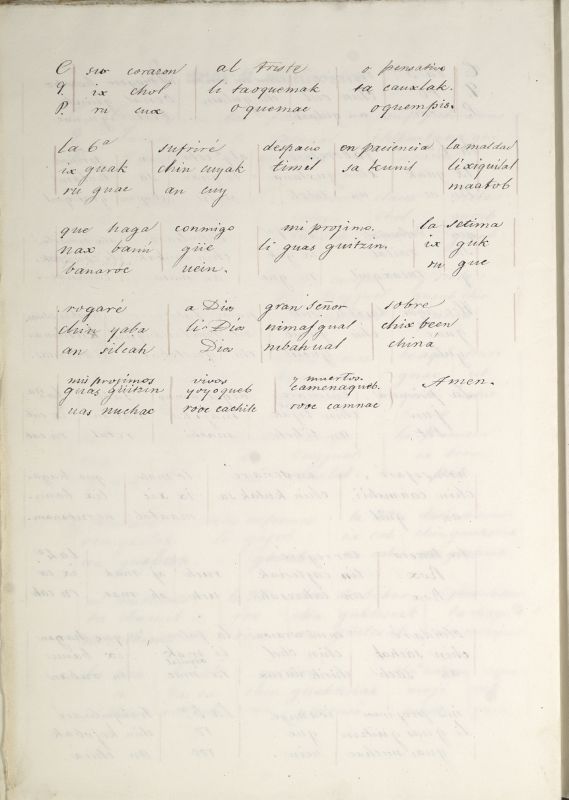 C su corazon al triste o pensativo
Q. ix chol li taoquemak ta cauxlak.
P. ru cux oquemac oquempie.
la 6ª sufriré despacio en paciencia la maldad
ix guak chin cuyak timil sa kunil lixiquilal
ru guac an cuy maatob
que haga conmigo mi projimo. la setima
nax banú güe li guas guitzin. ix guk
banaroc uein. ru gue
rogaré a Dios gran señor sobre
chin yaba li Dios nimajgual chix been
an silcah Dios nibahual chiná
mis projimos vivos y muertos. Amen.
guas guitzin yoyoqueb camenaqueb.
uas nuchac rooc cachilc rooc camnac